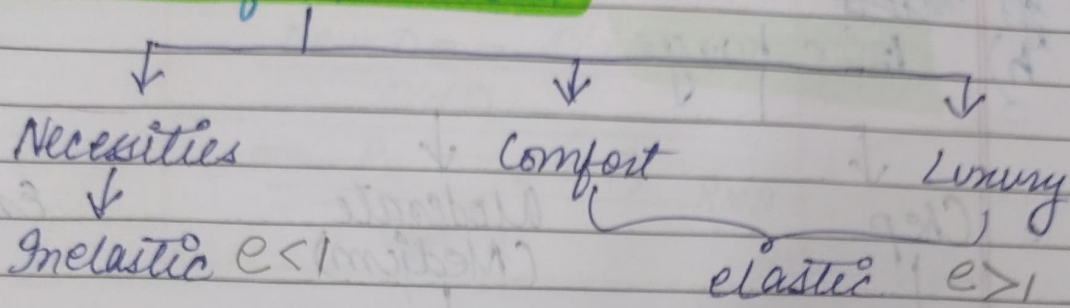 Necessities Comfort Luxury
Inelastic e<1 elastic e>1